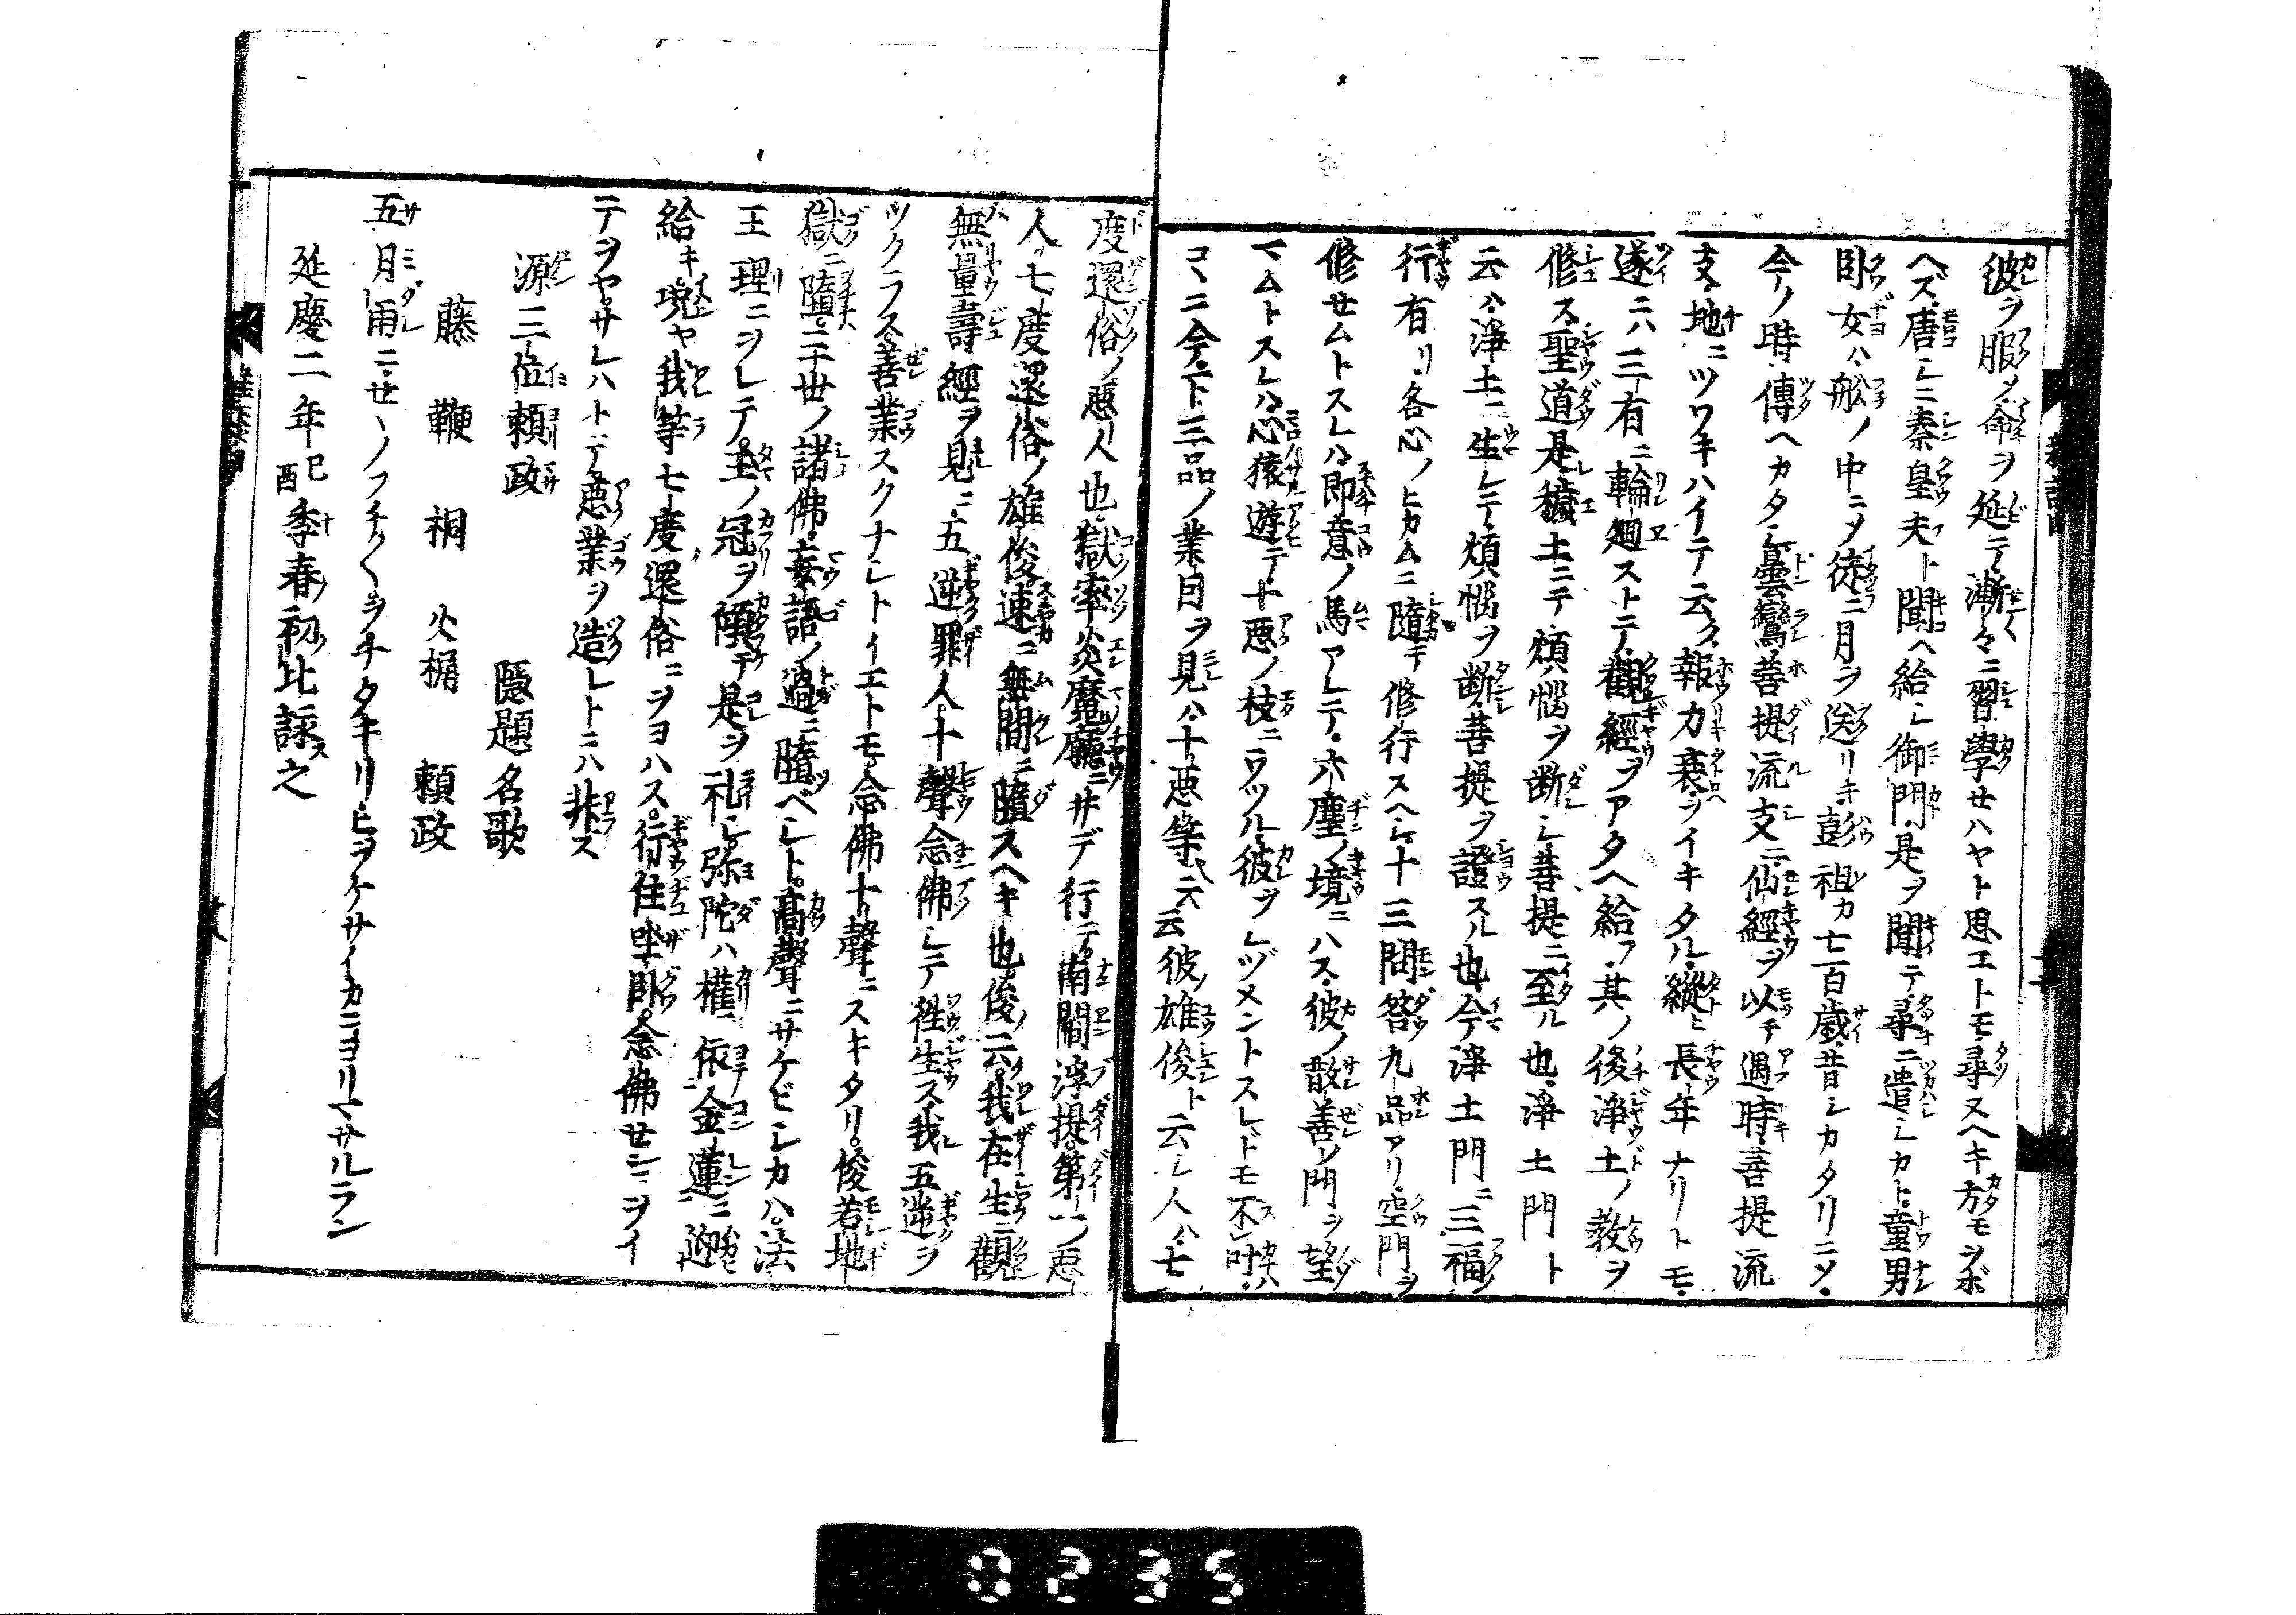 彼ヲ服メ命ヲ延テ漸々ニ習學セハヤト思エトモ尋ヌヘキ方モヲボ
ヘズ唐シニ秦皇夫ト聞ヘ給シ御門是ヲ聞テ尋ニ遣シカト童男
臥女ハ舩ノ中ニノ徒ニ月ヲ送リキ彭祖カ七百歳昔シカタリニソ
今ノ時傳ヘカタシ曇鸞菩提流支ニ仙經ヲ以テ遇時菩提流
支地ニツワキハイテ云ク報力衰ヲイキタル縱ヒ長年ナリトモ
遂ニハ三有ニ輪廻ストニテ觀經ヲアタヘ給フ其ノ後淨土ノ教ヲ
修ス聖道是穢土ニテ煩惱ヲ断シ菩提ニ至ル也淨土門ト
云ハ淨土ニ生レテ煩惱ヲ断菩提ヲ證スル也今淨土門ニ三福
行有リ各心ノヒカムニ隨テ修行スヘシ十三問答九品アリ空門ヲ
修セムトスレハ即意ノ馬アレテ六塵ノ境ニハス彼ノ散善ノ門ヲ望
マムトスレハ心猿遊テ十悪ノ枝ニウツル彼ヲシヅメントスレドモ不叶
コヽニ今下三品ノ業目ヲ見ハ十悪等云云彼雄俊ト云シ人ハ七
度還俗ノ悪人也獄率炎魔廳ニサデ行ニ南閻浮提第一ノ悪
人七度還俗ノ雄俊速ニ無間ニ隨スヘキ也俊云我在生ニ觀
無量壽經ヲ見ニ五逆罪人十聲念佛シテ徃生ス我五逆ヲ
ツクラス善業スクナシトイエトモ念佛十聲ニスキタリ俊若地
獄ニ隨三千世ノ諸佛妄語ノ過ニ隨ベシト高聲ニサケビシカハ法
王理ニヲレテ玉ノ冠ヲ傾テ是ヲ礼シ弥陀ハ權依金蓮ニ迎
給キ况ヤ我等七度還俗ニヲヨハス行住坐臥念佛センニヲイ
テヲヤサレハトテ悪業ヲ造レトニハ非ス
源三位頼政　隠題名歌
藤　鞭　桐　火桶　頼政
五月雨ニ世ヽノフチ〱ヲチタキリヒヲケサイカニヨリマサルラン
延慶二年己酉季春初比詠之